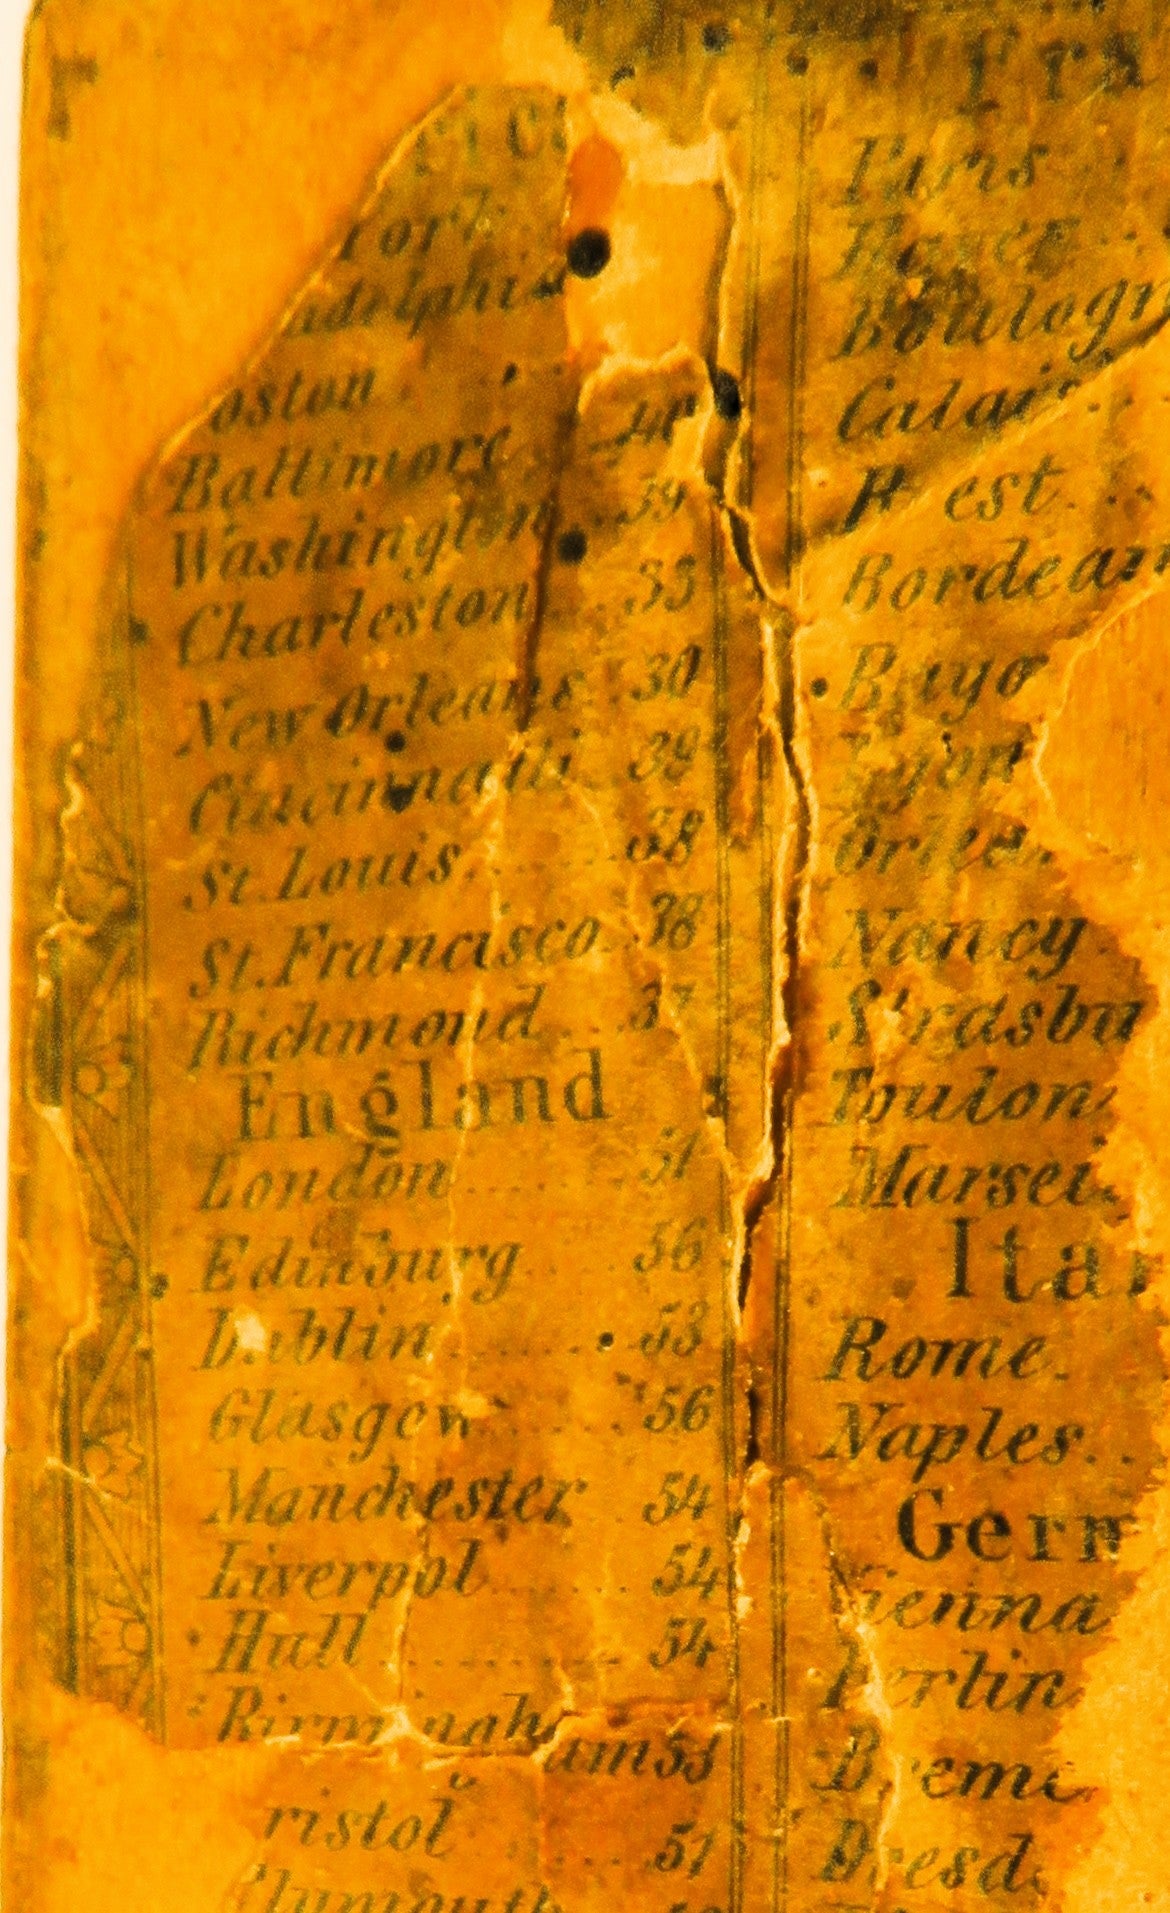 oston
Baltimore
Washington 39
Charleston 33
New Orleans 30
Cincinnati 39
St. Louis 38
St. Francisco 38
Richmond 37
England
London 51
Edinburg 56
Dublin 53
Glasgow 56
Manchester 54
Liverpol 54
Hull 54
Birmingham 53
ristol 51
lymouth
Fra
Paris
Boulogn
Calais
est
Bordeau
Bayo
Lyon
Nancy
Strasbu
Toulon
Marsei
Ital
Rome
Naples
Germ
ienna
Berlin
Breme
Dresd